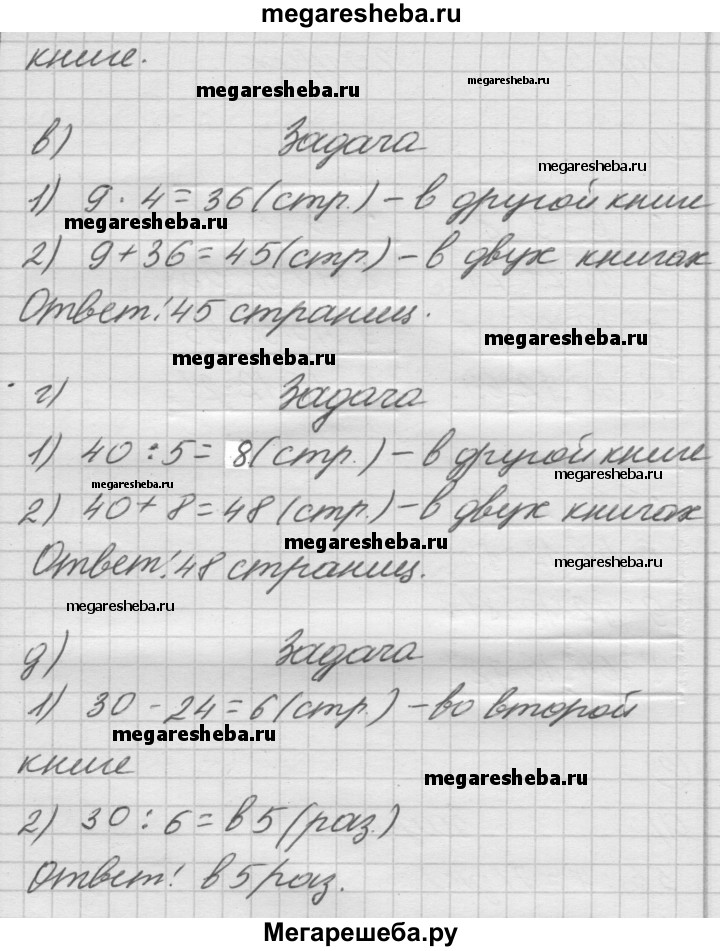 megaresheba.ru
книге.
megaresheba.ru
megaresheba.ru
в) Задача
megaresheba.ru
1) 9 · 4 = 36 (стр.) - в другой книге
megaresheba.ru
2) 9 + 36 = 45 (стр) - в двух книгах
Ответ: 45 страниц.
megaresheba.ru
megaresheba.ru
г) Задача
1) 40 : 5 = 8 (стр.) - в другой книге
megaresheba.ru
megaresheba.ru
2) 40 + 8 = 48 (стр.) - в двух книгах
megaresheba.ru
Ответ: 48 страниц.
megaresheba.ru
megaresheba.ru
д) Задача
1) 30 - 24 = 6 (стр.) - во второй
megaresheba.ru
книге
megaresheba.ru
2) 30 : 6 = в 5 (раз.)
Ответ: в 5 раз.
Мегарешеба.ру